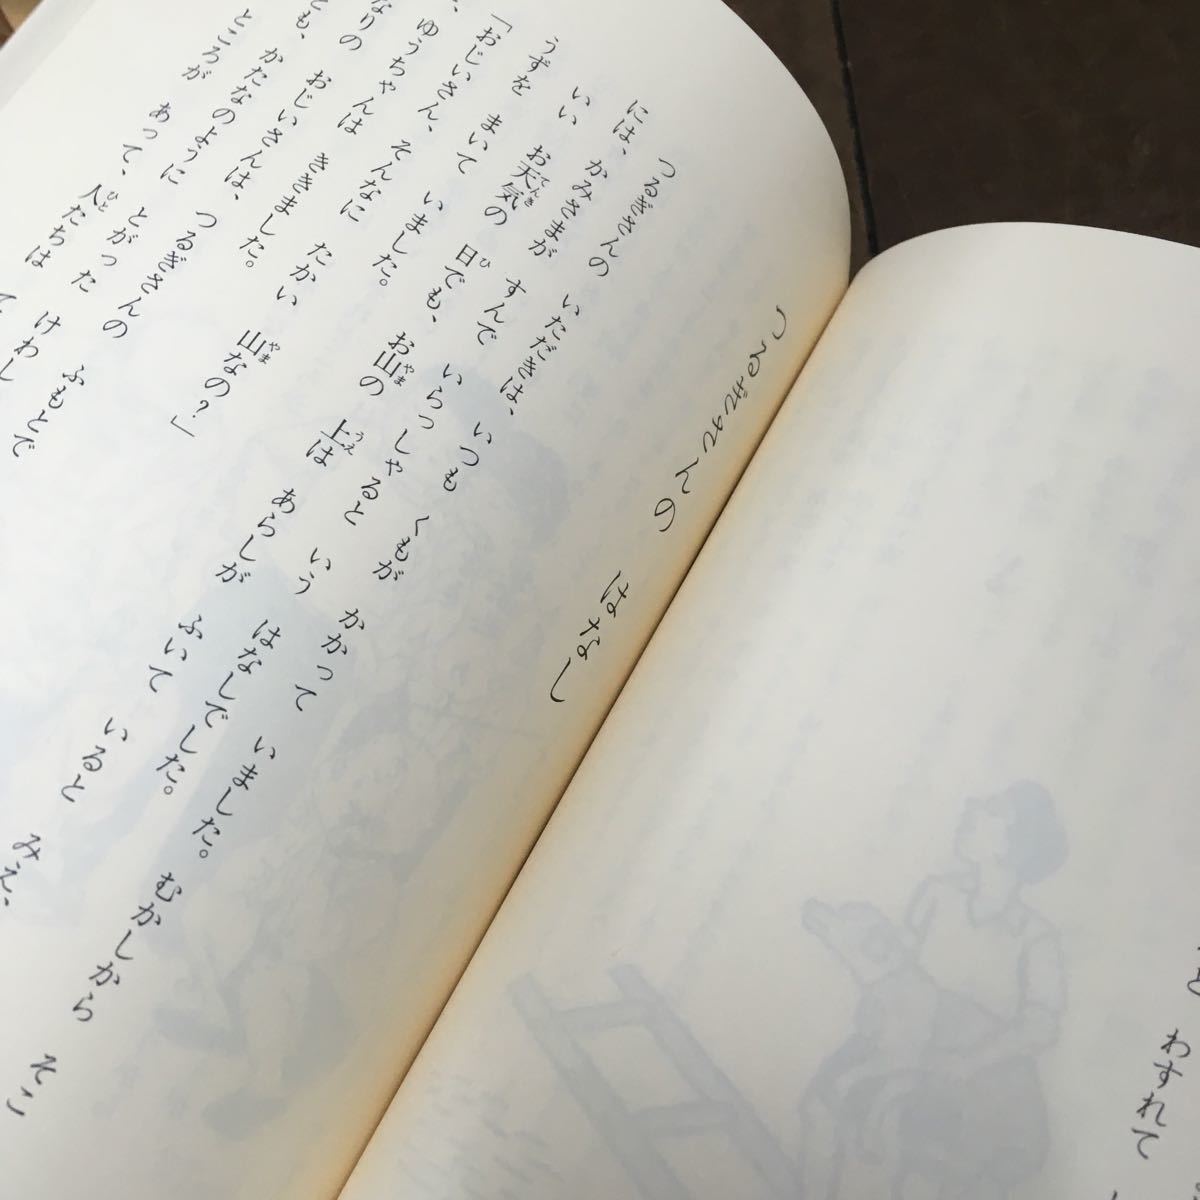 と わすれて
つるぎさんの はなし
つるぎさんの いただきは、いつも くもが かかって いました。むかしから そこ
には、かみさまが すんで いらっしゃると いう はなしでした。
いい お天気の 日でも、お山の 上は あらしが ふいて いると みえ、
うずを まいて いました。
「おじいさん、そんなに たかい 山なの?」
、ゆうちゃんは ききました。
なりの おじいさんは、つるぎさんの ふもとで
とも、かたなのように とがった けわし
ところが あって、人たちは